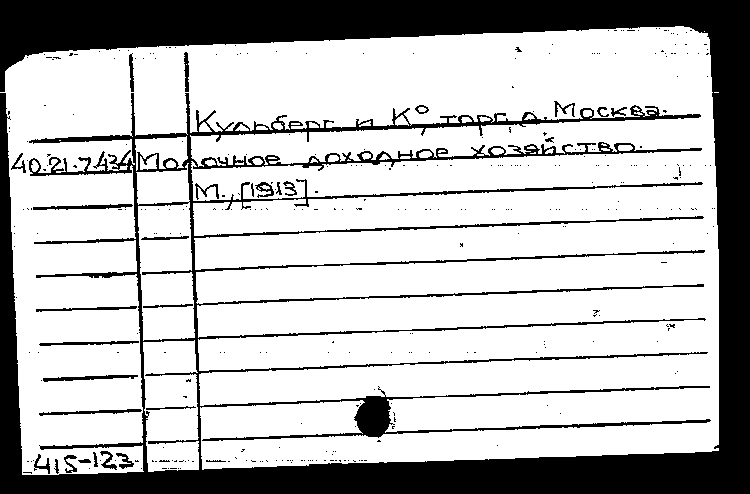 Кульберг и К°, торг. д. Москва.
40.21.7434 Молочное доходное хозяйство.
М., [1913].
415-123